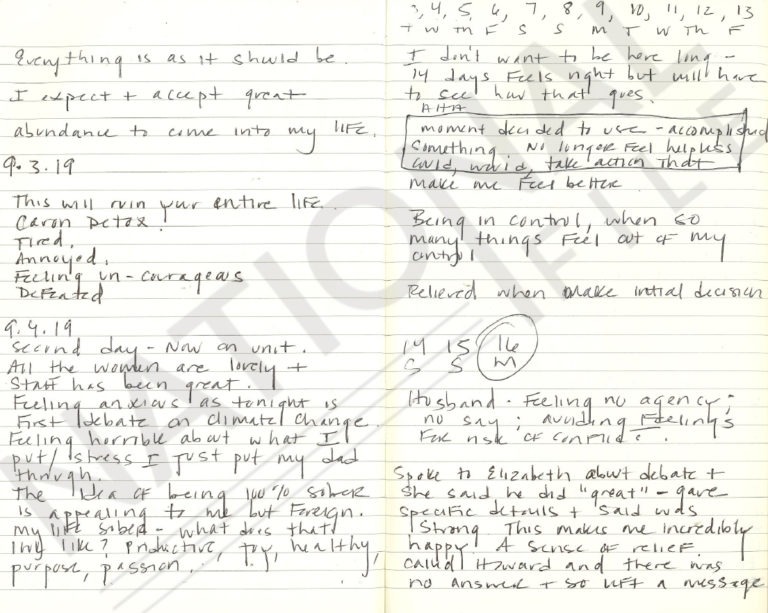 Everything is as it should be.
I expect + accept great
abundance to come into my life.
9.3.19
This will ruin your entire life.
Caron Detox!
Tired.
Annoyed.
Feeling un-courageous
Defeated
9.4.19
Second day - Now on unit.
All the women are lovely +
Staff has been great.
Feeling anxious as tonight is
First debate on climate change.
Feeling horrible about what I
put/stress I just put my dad
through.
The idea of being 100% sober
is appealing to me but foreign.
My life sober - what does that
look like? Productive, joy, healthy,
purpose, passion.
3, 4, 5, 6, 7, 8, 9, 10, 11, 12, 13
T W Th F S S M T W Th F
I don't want to be here long -
14 days feels right but will have
to see how that goes.
AHA
moment decided to use - accomplished
something. No longer feel helpless
avoid, take action that
make me feel better.
Being in control, when so
many things feel out of my
control
Relieved when make initial decision
14 15 16
S S M
Husband - Feeling no agency;
no say; avoiding Feelings
for risk of conflict.
Spoke to Elizabeth about debate +
she said he did "great" - gave
specific details + said was
strong This makes me incredibly
happy! A sense of relief.
called Howard and there was
no answer + so left a message
NATIONAL FILE